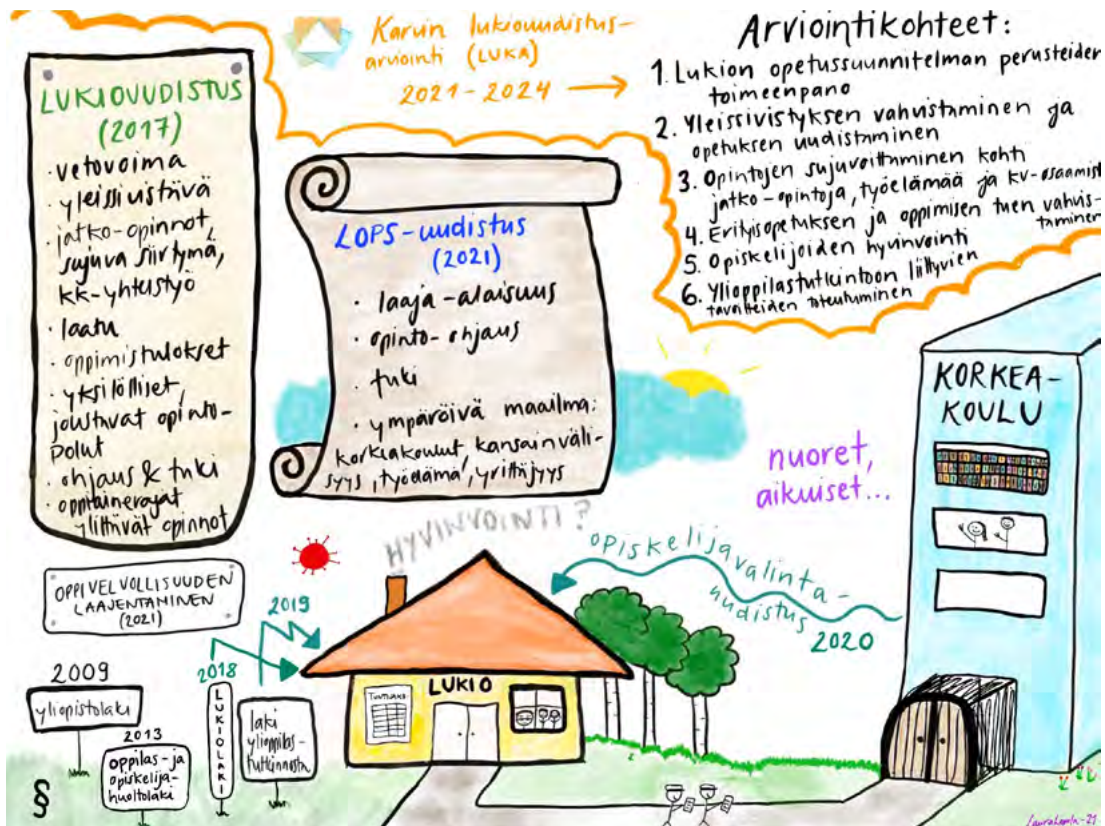 Karvin lukiouudistus-
arviointi (LUKA)
2021-2024
Arviointikohteet:
1. Lukion opetussuunnitelman perusteiden
toimeenpano
2. Yleissivistyksen vahvistaminen ja
opetuksen uudistaminen
3. Opintojen sujuvoittaminen kohti
jatko-opintoja, työelämää ja kv-osaamist
4. Erityisopetuksen ja oppimisen tuen vahvis-
taminen
5. Opiskelijoiden hyvinvointi
6. Ylioppilastutkintoon liittyvien
tavoitteiden toteutuminen
LUKIOUUDISTUS
(2017)
· vetovoima
· yleissivistävä
· jatko-opinnot,
sujuva siirtymä,
kk-yhteistyö
· laatu
· oppimistulokset
· yksilölliset,
joustavat opinto-
polut
· ohjaus & tuki
· oppiainerajat
ylittävät opinnot
LOPS-uudistus
(2021)
· laaja-alaisuus
· opinto-ohjaus
· tuki
· ympäröivä maailma:
korkeakoulut, kansainväli-
syys, työelämä, yrittäjyys
KORKEA-
KOULU
nuoret,
aikuiset...
HYVINVOINTI?
opiskelijavalinta-
uudistus
2020
OPPIVELVOLLISUUDEN
LAAJENTAMINEN
(2021)
2019
2018
2009
yliopistolaki
2013
oppilas- ja
opiskelija-
huoltolaki
LUKIOLAKI
laki
ylioppilas-
tutkinnosta
LUKIO
§